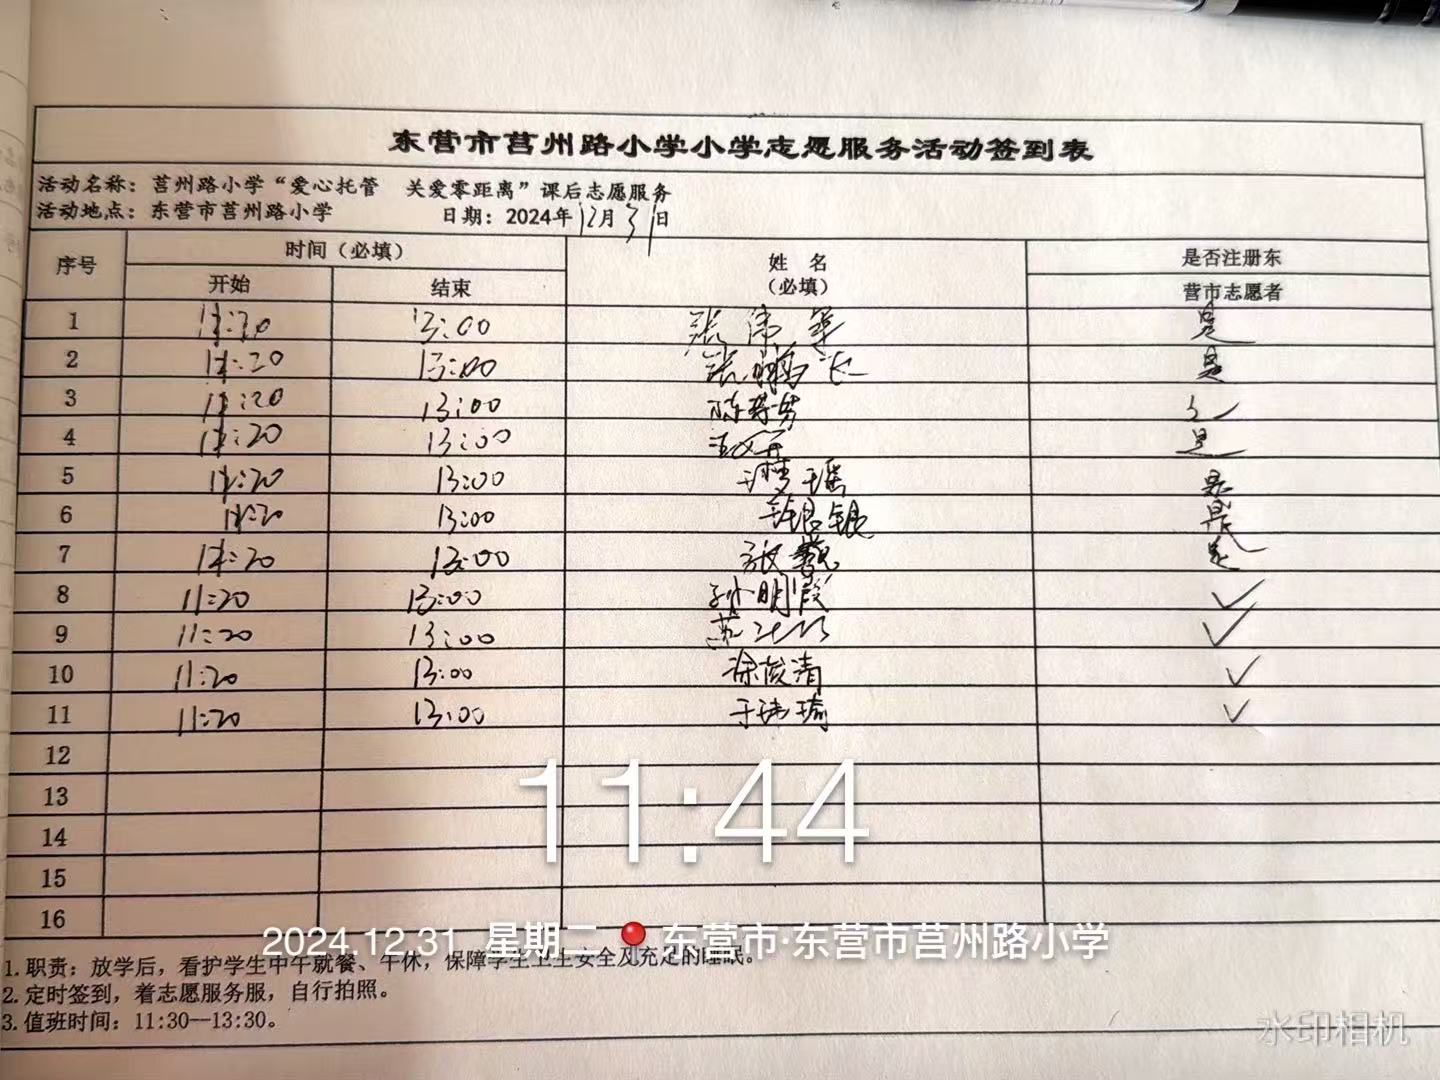 东营市莒州路小学小学志愿服务活动签到表
活动名称：莒州路小学“爱心托管 关爱零距离”课后志愿服务
活动地点：东营市莒州路小学 日期：2024年12月31日
序号 时间（必填） 姓 名 （必填） 是否注册东营市志愿者
开始 结束
1 11:20 13:00 张 是
2 11:20 13:00 张鹏飞 是
3 11:20 13:00
4 11:20 13:00 是
5 11:20 13:00 于梦瑶 是
6 11:20 13:00 是
7 11:20 13:00 张巍 是
8 11:20 13:00 孙明霞 ✓
9 11:20 13:00 ✓
10 11:20 13:00 徐俊清 ✓
11 11:20 13:00 于玮瑜 ✓
12
13
14
15
16
11:44
2024.12.31 星期二 东营市·东营市莒州路小学
1.职责：放学后，看护学生中午就餐、午休，保障学生卫生安全及充足的睡眠。
2.定时签到，着志愿服务服，自行拍照。
3.值班时间：11:30--13:30。
水印相机